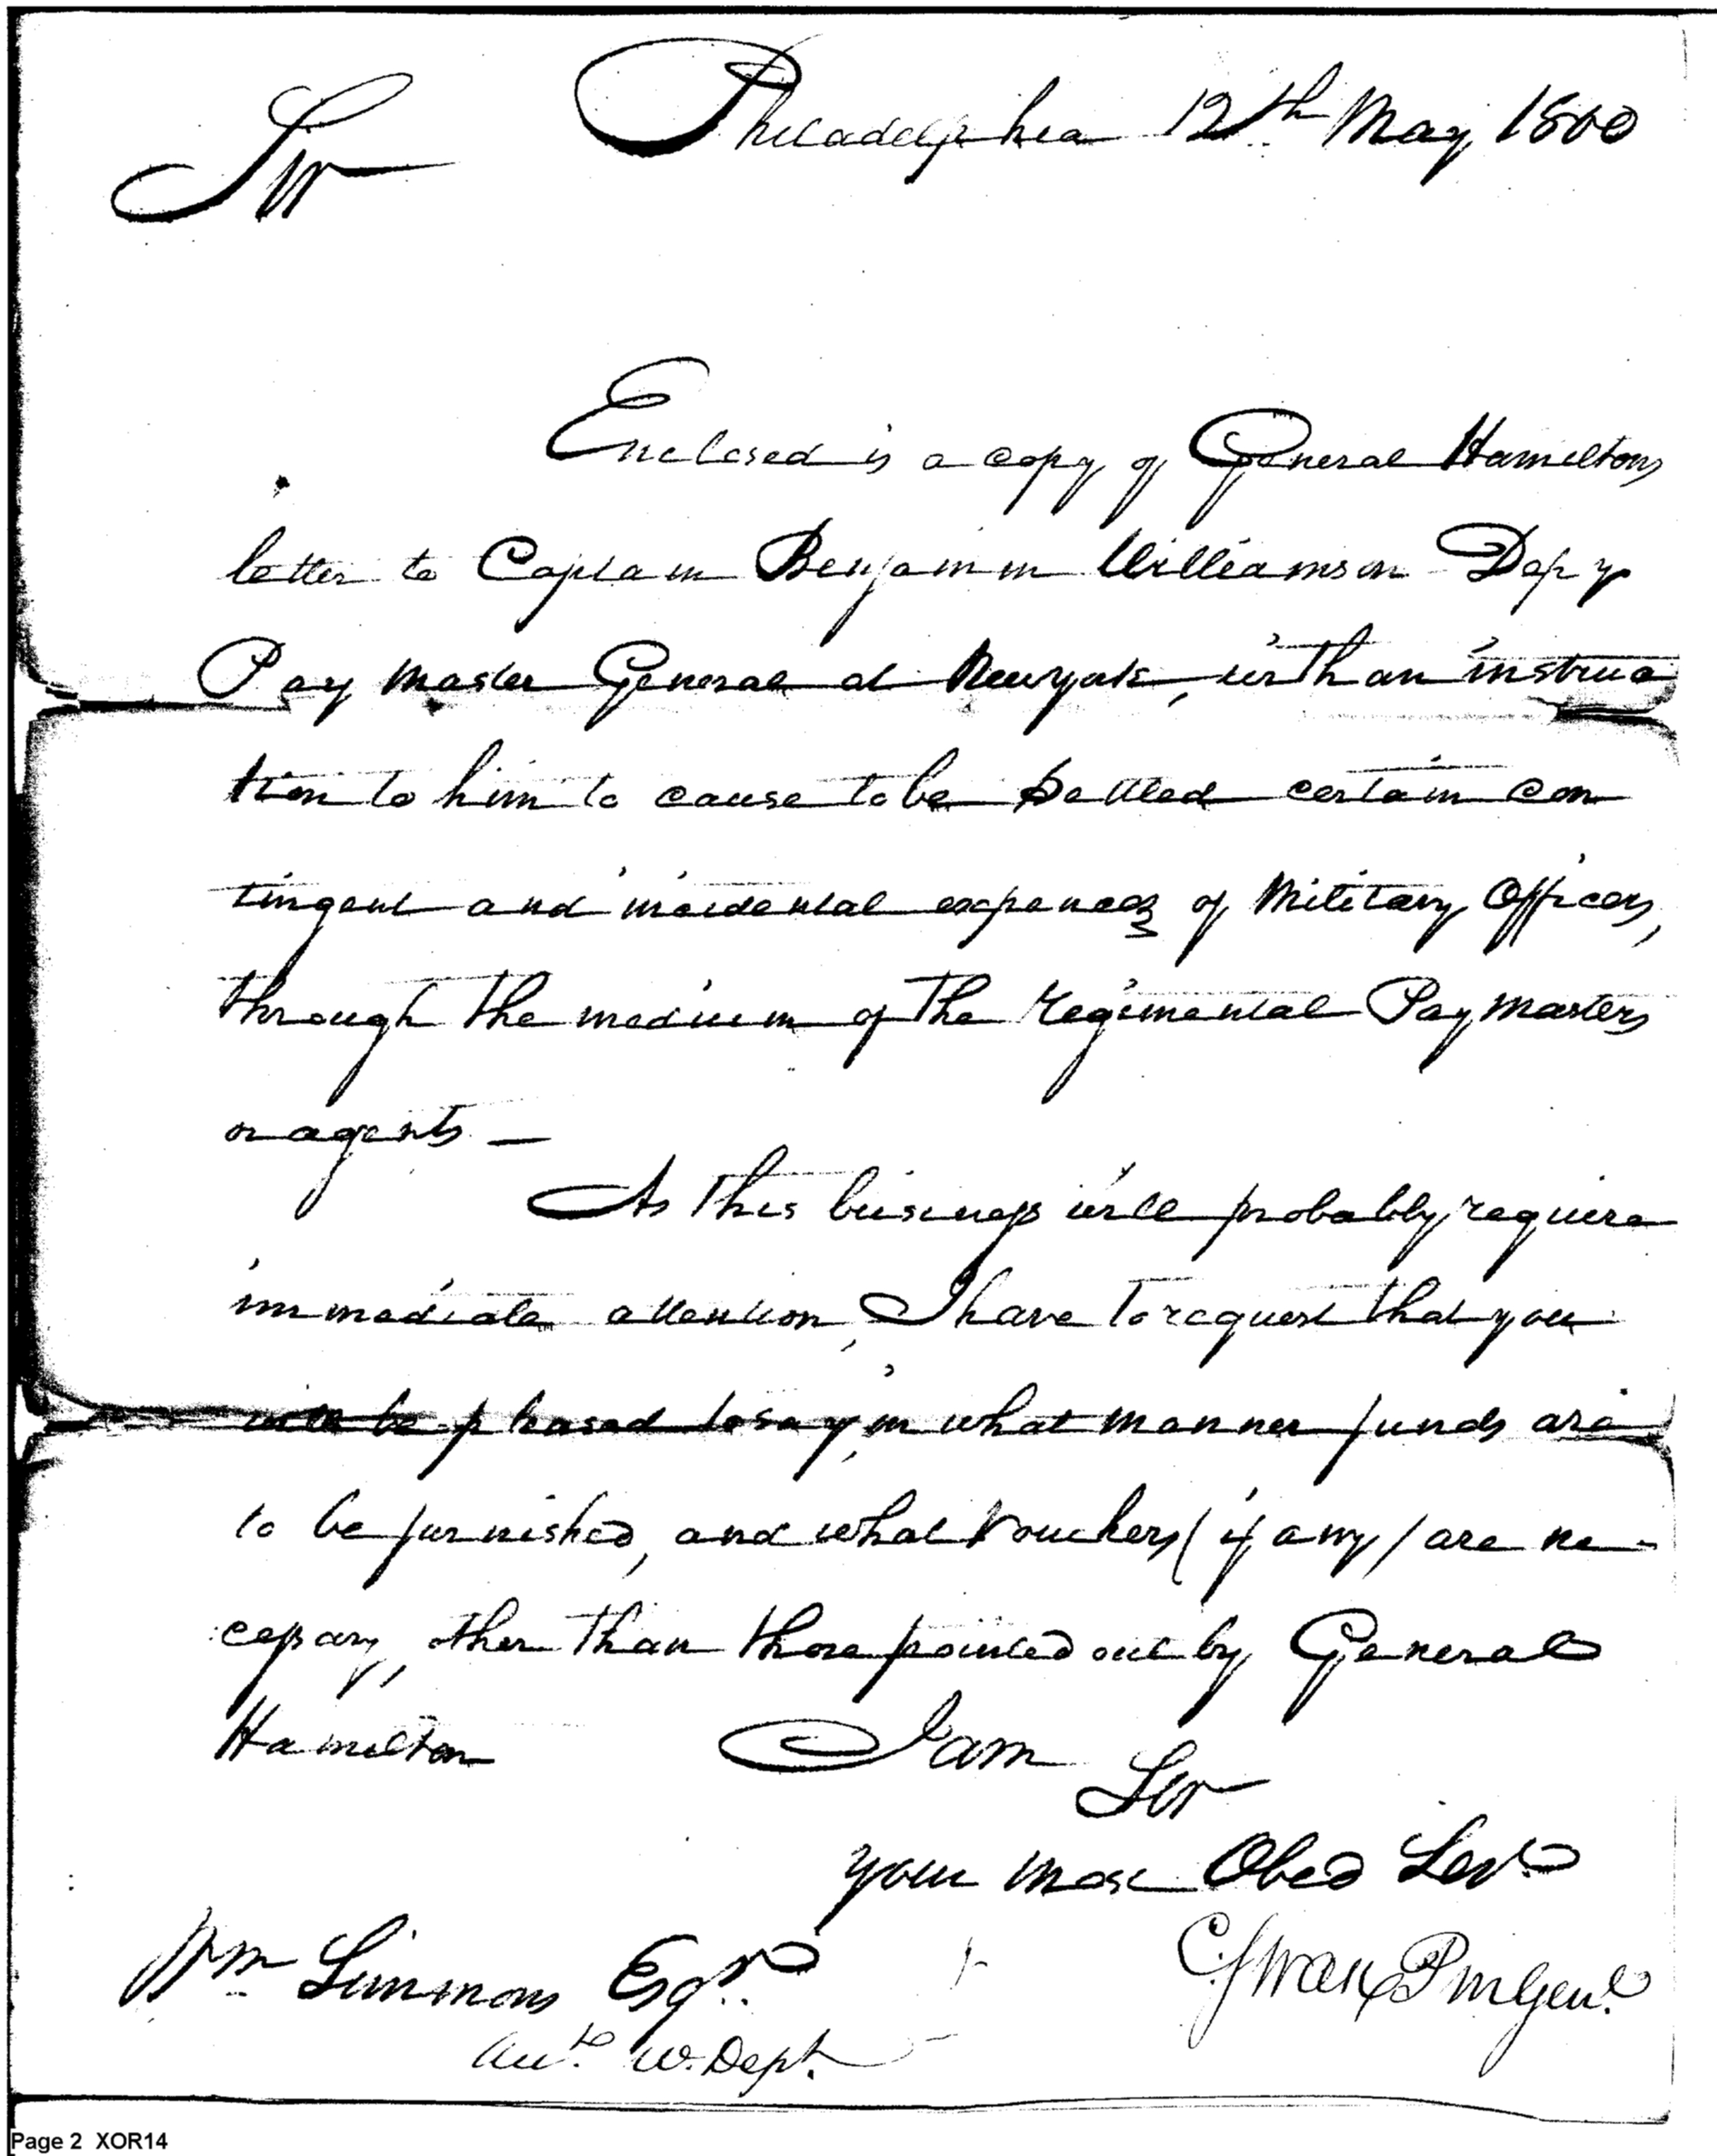 Philadelphia 12th May 1800
Sir
Enclosed is a copy of General Hamiltons
letter to Captain Benjamin Williamson Depy
Pay Master General at Newyork, with an instruc
tion to him to cause to be settled certain con
tingent and incidental expences of Military Officers,
through the medium of the regimental Pay Masters
or agents —
As this business will probably require
immediate attention, I have to request that you
will be pleased to say, in what manner funds are
to be furnished, and what Vouchers (if any) are ne-
cessary, other than those pointed out by General
Hamilton
I am
Sir
your most Obed Servt
C. Swan P M Genl.
Wm Simmons Esqr.
Acct. W. Dept.
Page 2 XOR14